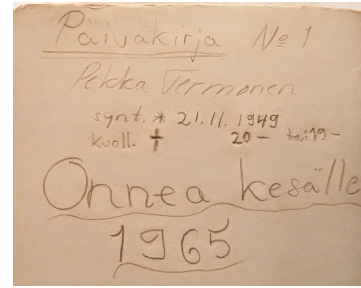 Päiväkirja № 1
Pekka Termonen
synt. * 21.11.1949
kuoll. † 20- tai 19-
Onnea kesälle
1965